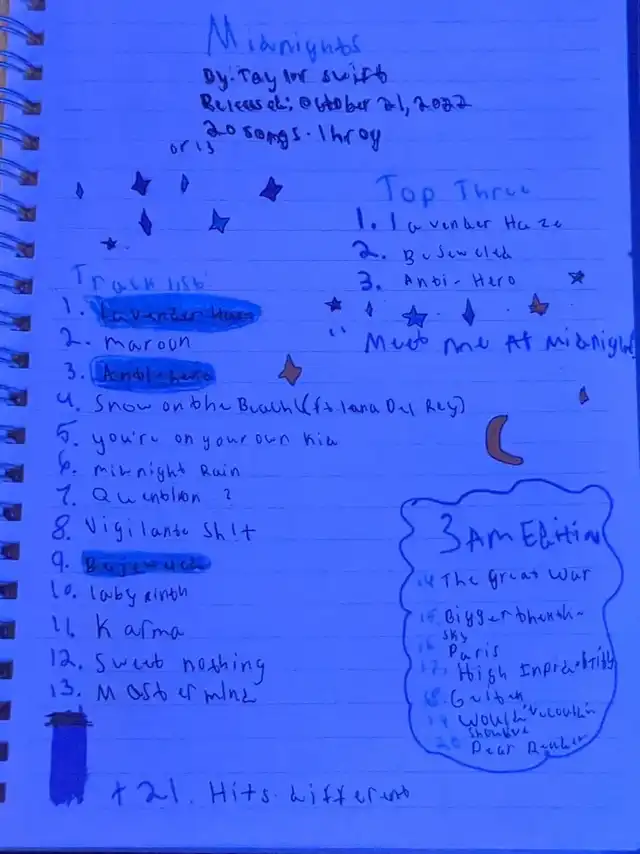 Midnights
By: Taylor swift
Released: October 21, 2022
20 songs. 1 hr 0y
or 13
Top Three
1. Lavender Haze
2. Bejeweled
3. Anti-Hero
"Meet me At midnight
Track list:
1. Lavender Haze
2. maroon
3. Anti-hero
4. Snow on the Beach (ft lana Del Rey)
5. you're on your own kid
6. midnight Rain
7. Question ?
8. Vigilante Sh!t
9. Bejeweled
10. labyrinth
11. Karma
12. Sweet nothing
13. Mastermind
3 AM Edition
14. The great War
15. Bigger than th-
sky
16. Paris
17. High Inp
18. Glitch
19. Would've could've
Should've
20. Dear Reader
+ 21. Hits different